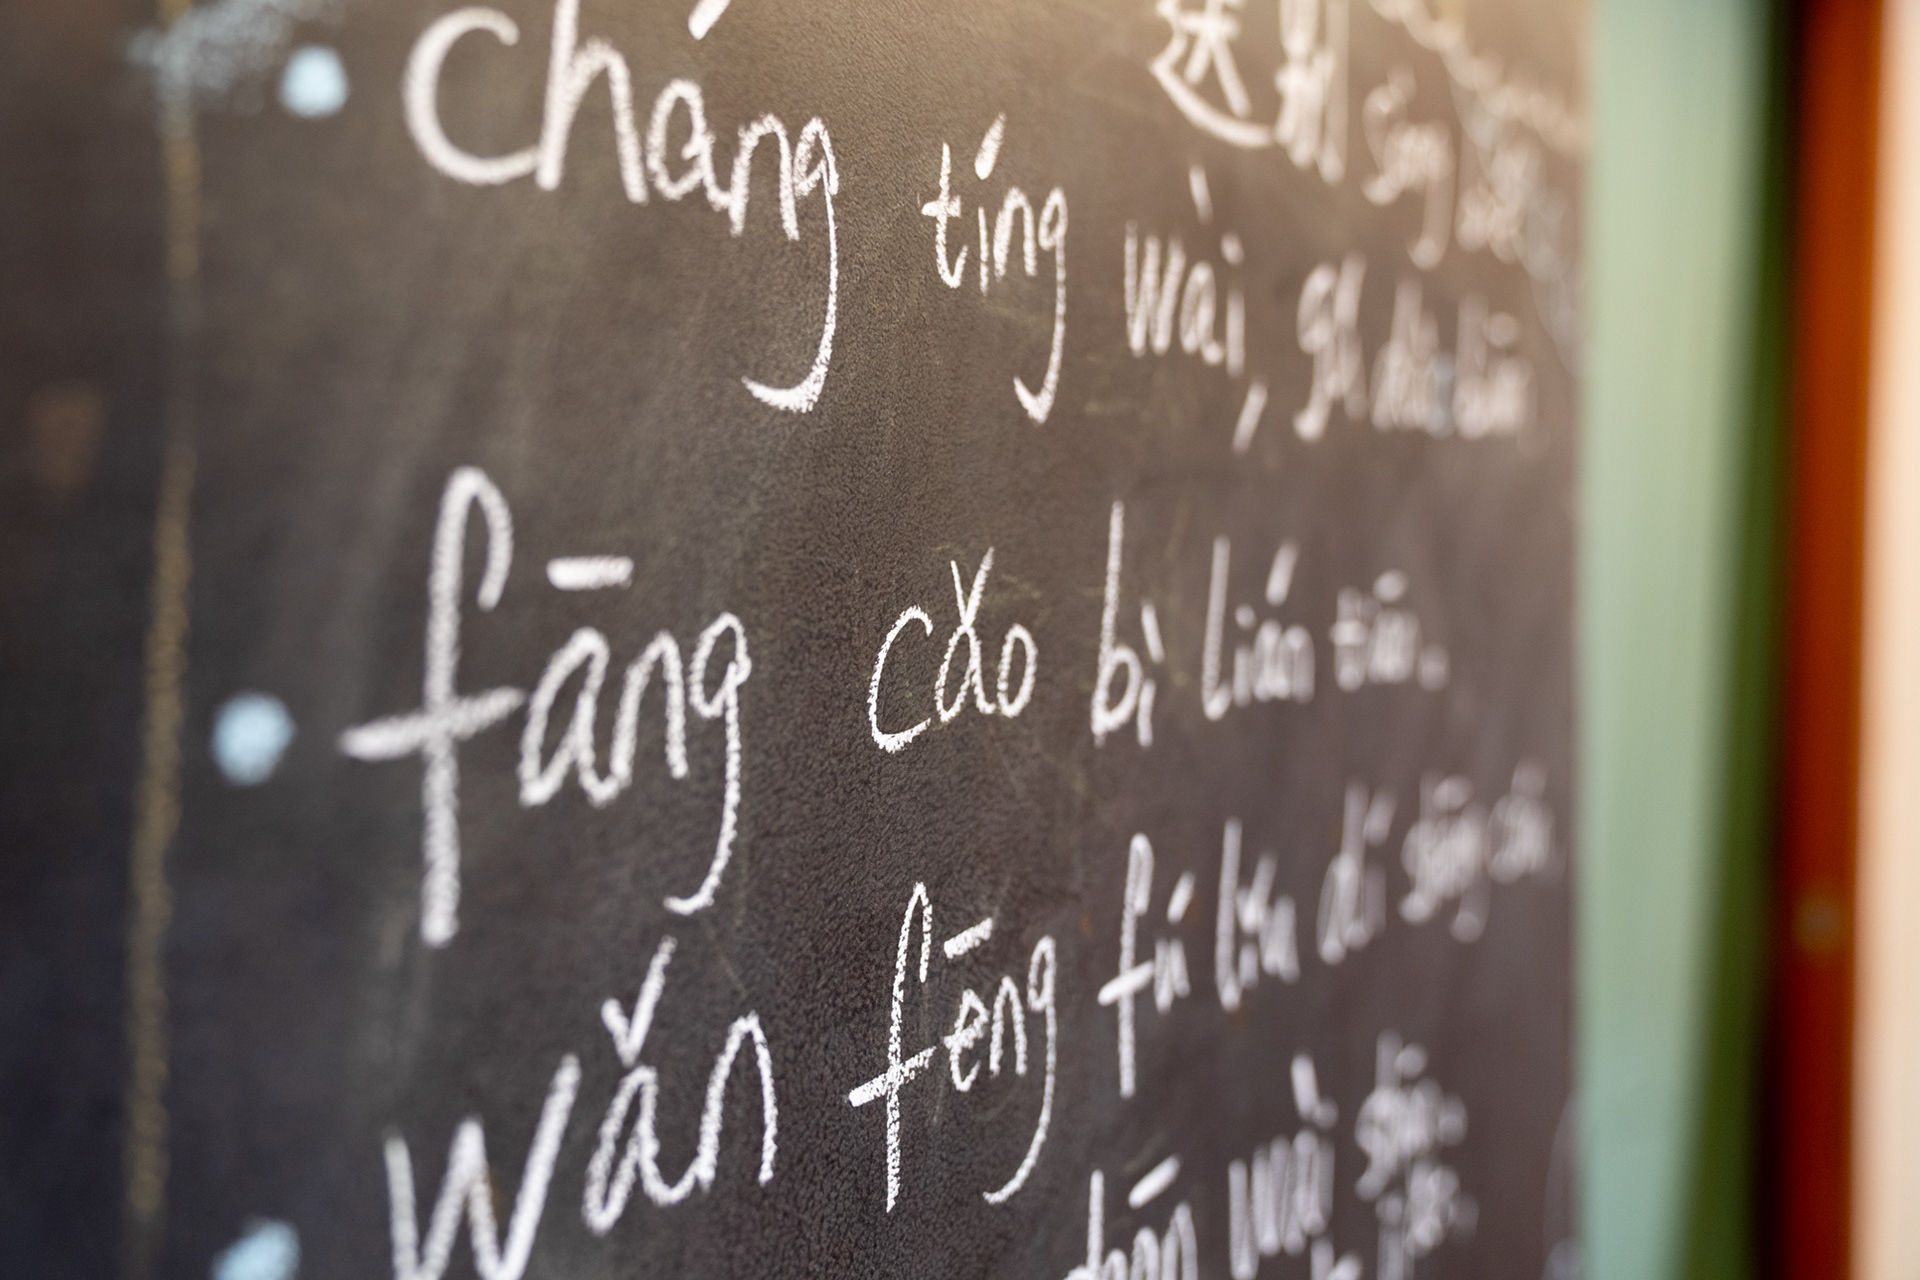 送别 sòng bié
cháng tíng wài, gǔ dào biān,
fāng cǎo bì lián tiān.
wǎn fēng fú liǔ dí shēng cán
wài